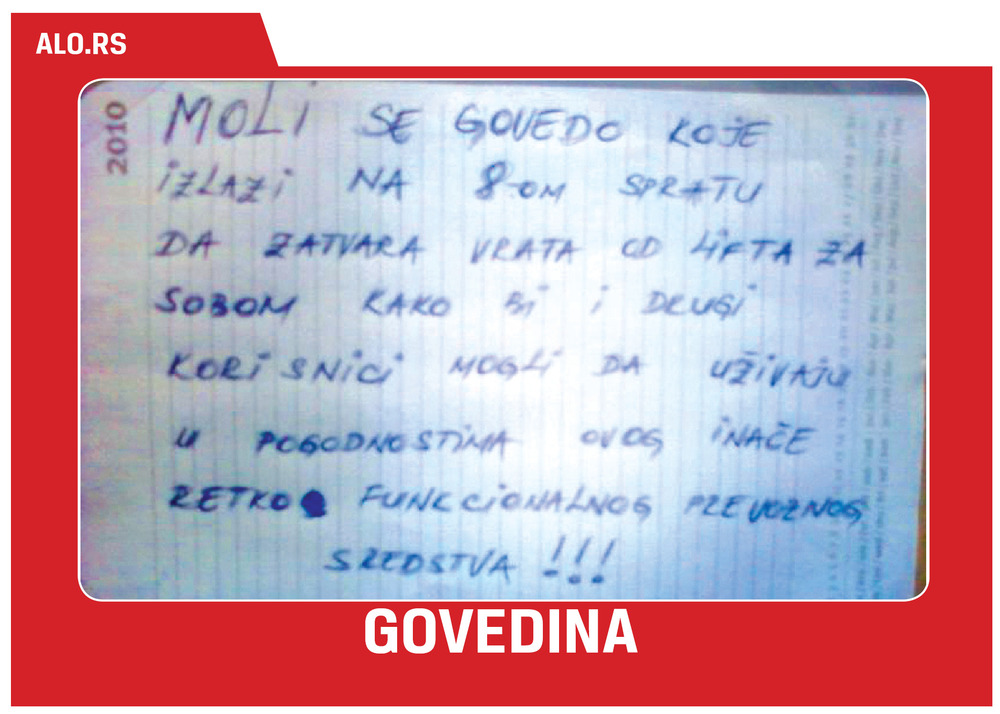 ALO.RS
2010
MOLI SE GOVEDO KOJE
IZLAZI NA 8-OM SPRATU
DA ZATVARA VRATA OD LIFTA ZA
SOBOM KAKO BI I DRUGI
KORISNICI MOGLI DA UŽIVAJU
U POGODNOSTIMA OVOG INAČE
RETKO FUNKCIONALNOG PREVOZNOG
SREDSTVA !!!
GOVEDINA